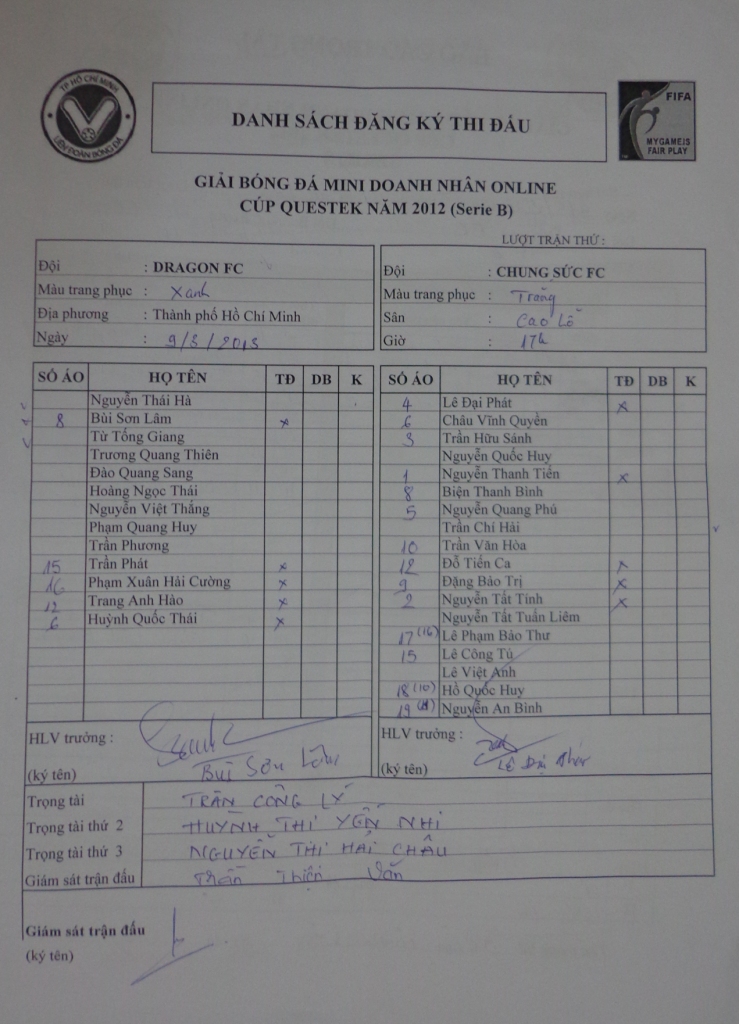 TP HỒ CHÍ MINH
LIÊN ĐOÀN BÓNG ĐÁ
DANH SÁCH ĐĂNG KÝ THI ĐẤU
FIFA
MYGAMEIS
FAIR PLAY
GIẢI BÓNG ĐÁ MINI DOANH NHÂN ONLINE
CÚP QUESTEK NĂM 2012 (Serie B)
LƯỢT TRẬN THỨ :
Đội : DRAGON FC
Màu trang phục : Xanh
Địa phương : Thành phố Hồ Chí Minh
Ngày : 9/3/2013
Đội : CHUNG SỨC FC
Màu trang phục : Trắng
Sân : Cao Lỗ
Giờ : 17h
SỐ ÁO HỌ TÊN TĐ DB K
Nguyễn Thái Hà
8 Bùi Sơn Lâm x
Từ Tống Giang
Trương Quang Thiên
Đào Quang Sang
Hoàng Ngọc Thái
Nguyễn Việt Thắng
Phạm Quang Huy
Trần Phương
15 Trần Phát x
16 Phạm Xuân Hải Cường x
12 Trang Anh Hào x
6 Huỳnh Quốc Thái x
SỐ ÁO HỌ TÊN TĐ DB K
4 Lê Đại Phát x
6 Châu Vĩnh Quyền
3 Trần Hữu Sánh
Nguyễn Quốc Huy
1 Nguyễn Thanh Tiến x
8 Biện Thanh Bình
5 Nguyễn Quang Phú
Trần Chí Hải
10 Trần Văn Hòa
12 Đỗ Tiến Ca x
9 Đặng Bảo Trị x
2 Nguyễn Tất Tính x
Nguyễn Tất Tuấn Liêm
17 (16) Lê Phạm Bảo Thư
15 Lê Công Tú
Lê Việt Anh
18 (10) Hồ Quốc Huy
19 Nguyễn An Bình
HLV trưởng :
(ký tên) Bùi Sơn Lâm
HLV trưởng :
(ký tên) Lê Đại Phát
Trọng tài TRẦN CÔNG LÝ
Trọng tài thứ 2 HUỲNH THỊ YẾN NHI
Trọng tài thứ 3 NGUYỄN THỊ HẢI CHÂU
Giám sát trận đấu Trần Thiện Văn
Giám sát trận đấu
(ký tên)